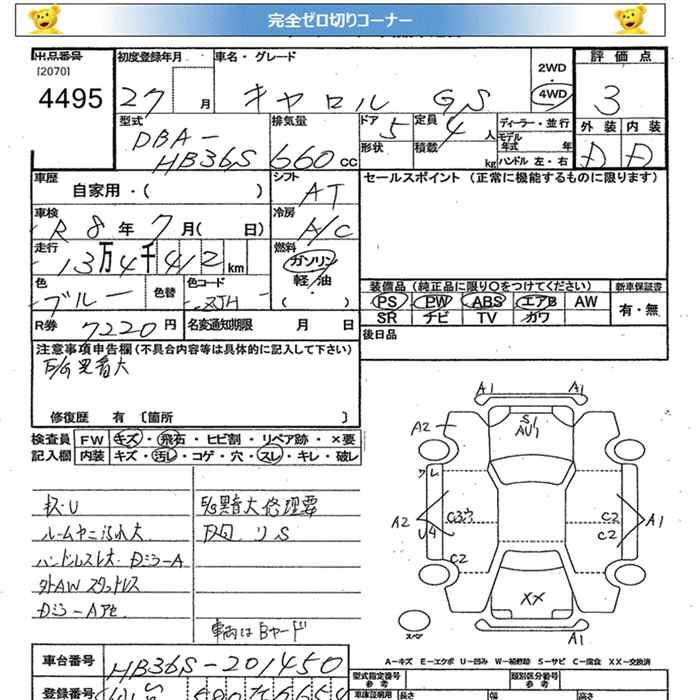 完全ゼロ切りコーナー
出品番号 初度登録年月 車名・グレード 2WD ・ 4WD 評価点
[2070]
4495 27 月 キャロル GS 3
型式 排気量 ドア 定員 ディーラー・並行 外装 内装
DBA-HB36S 660 cc 5 4 人 モデル年式 年 D D
形状 積載 kg ハンドル 左・右
車歴 シフト セールスポイント (正常に機能するものに限ります)
自家用・( ) AT
車検 冷房
R 8 年 7 月( 日) A/C
走行 燃料
13万4千412 km ガソリン
軽・油
( ・ )
色 色替 色コード
ブルー ZJH
装備品 (純正品に限り○をつけてください) 新車保証書
PS PW ABS エアB AW 有・無
SR ナビ TV カワ
R券 7220 円 名変通知期限 月 日 後日品
注意事項申告欄 (不具合内容等は具体的に記入して下さい)
E/G異音大
修復歴 有 〔箇所 〕
検査員 FW キズ・飛石・ヒビ割・リペア跡・×要
記入欄 内装 キズ・汚レ・コゲ・穴・スレ・キレ・破レ
キズ・U E/G異音大修理要
ルームヤニ汚れ大 下回リS
ハンドルスレ大・DミラーA
外AWスタッドレス
DミラーAセ
車両はBヤード
A1 A1
A2 S1
AU1
ワレ
A2 C3穴 C2 A1
U4 C2
C2
XX
スペア A1
A-キズ E-エクボ U-凹み W-補修跡 S-サビ C-腐食 XX-交換済
車台番号 HB36S-201450
型式指定番号 参考 類別区分番号 参考
登録番号
車庫証明用 長さ 幅 高さ